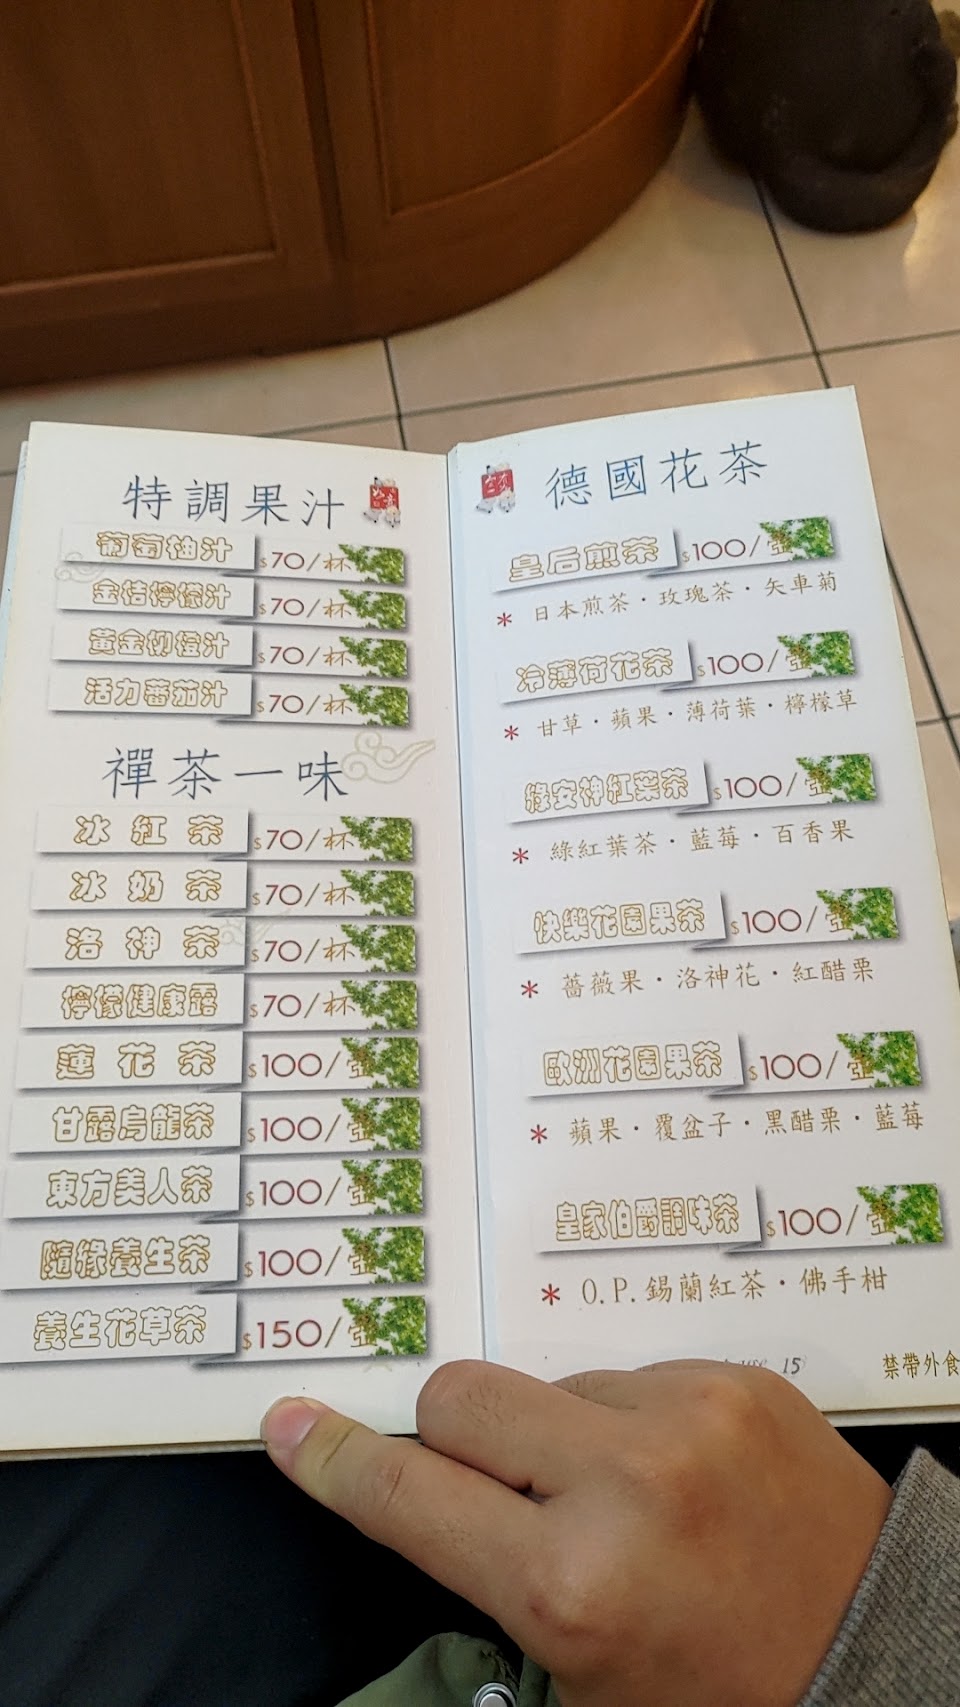 特調果汁
葡萄柚汁 $70/杯
金桔檸檬汁 $70/杯
黃金柳橙汁 $70/杯
活力蕃茄汁 $70/杯
禪茶一味
冰紅茶 $70/杯
冰奶茶 $70/杯
洛神茶 $70/杯
檸檬健康露 $70/杯
蓮花茶 $100/壺
甘露烏龍茶 $100/壺
東方美人茶 $100/壺
隨緣養生茶 $100/壺
養生花草茶 $150/壺
德國花茶
皇后煎茶 $100/壺
* 日本煎茶·玫瑰茶·矢車菊
冷薄荷花茶 $100/壺
* 甘草·蘋果·薄荷葉·檸檬草
綠安神紅葉茶 $100/壺
* 綠紅葉茶·藍莓·百香果
快樂花園果茶 $100/壺
* 薔薇果·洛神花·紅醋栗
歐洲花園果茶 $100/壺
* 蘋果·覆盆子·黑醋栗·藍莓
皇家伯爵調味茶 $100/壺
* O.P.錫蘭紅茶·佛手柑
15
禁帶外食